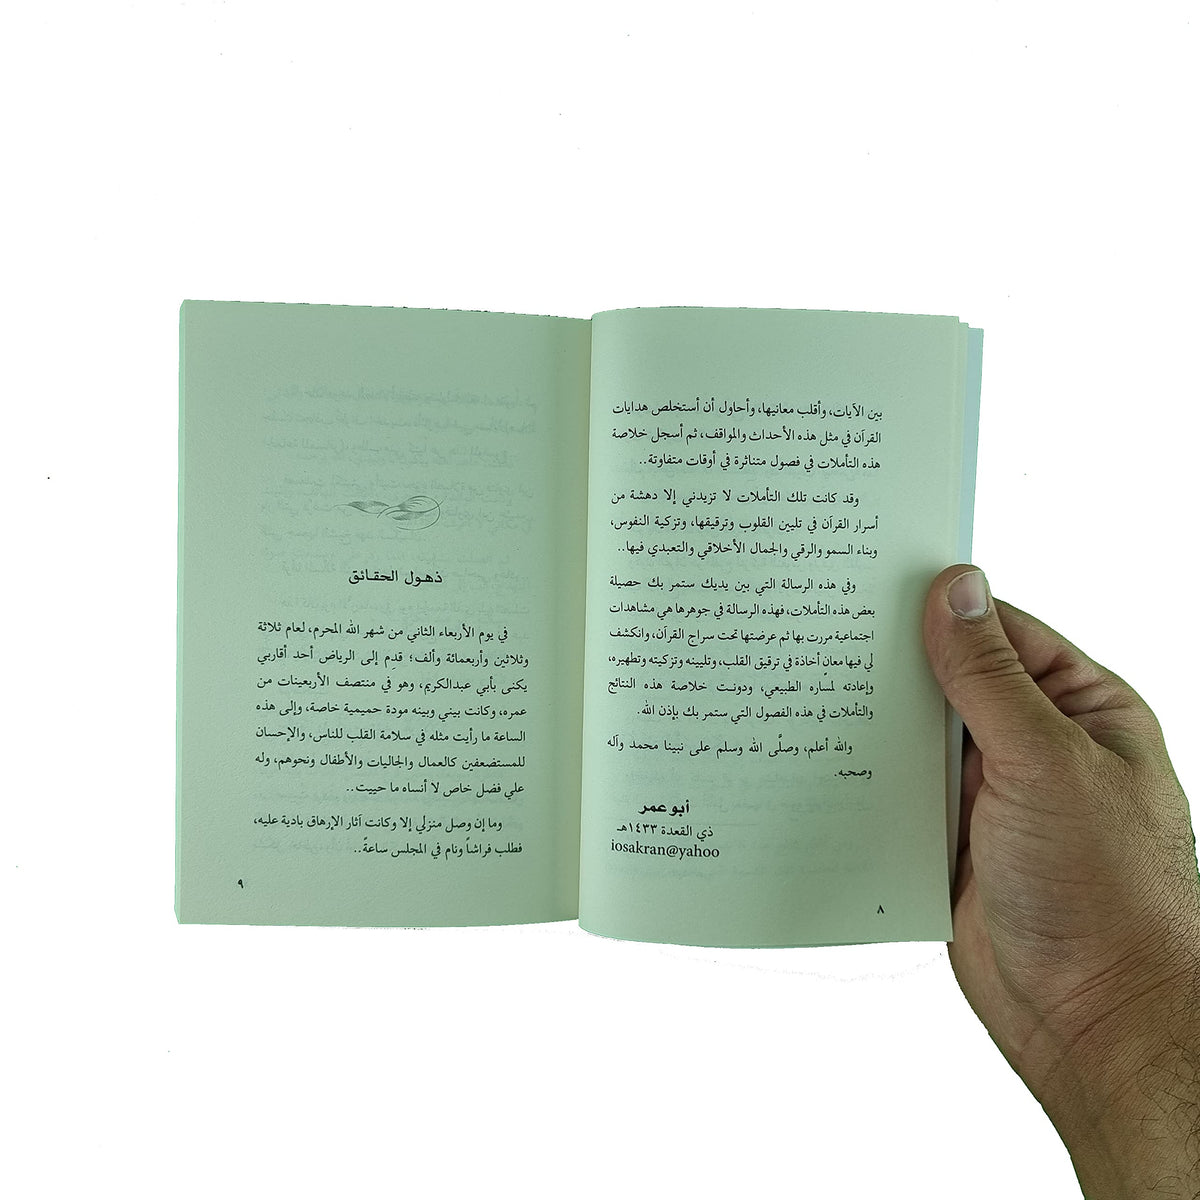 بين الآيات، وأقلب معانيها، وأحاول أن أستخلص هدايات
القرآن في مثل هذه الأحداث والمواقف، ثم أسجل خلاصة
هذه التأملات في فصول متناثرة في أوقات متفاوتة..
وقد كانت تلك التأملات لا تزيدني إلا دهشة من
أسرار القرآن في تليين القلوب وترقيقها، وتزكية النفوس،
وبناء السمو والرقي والجمال الأخلاقي والتعبدي فيها..
وفي هذه الرسالة التي بين يديك ستمر بك حصيلة
بعض هذه التأملات، فهذه الرسالة في جوهرها هي مشاهدات
اجتماعية مررت بها ثم عرضتها تحت سراج القرآن، وانكشف
لي فيها معانٍ أخاذة في ترقيق القلب، وتليينه وتزكيته وتطهيره،
وإعادته لمساره الطبيعي، ودونت خلاصة هذه النتائج
والتأملات في هذه الفصول التي ستمر بك بإذن الله.
والله أعلم، وصلَّى الله وسلم على نبينا محمد وآله
وصحبه.
أبو عمر
ذي القعدة ١٤٣٣هـ
iosakran@yahoo
٨
ذهول الحقائق
في يوم الأربعاء الثاني من شهر الله المحرم، لعام ثلاثة
وثلاثين وأربعمائة وألف؛ قدم إلى الرياض أحد أقاربي
يكنى بأبي عبدالكريم، وهو في منتصف الأربعينات من
عمره، وكانت بيني وبينه مودة حميمية خاصة، وإلى هذه
الساعة ما رأيت مثله في سلامة القلب للناس، والإحسان
للمستضعفين كالعمال والجاليات والأطفال ونحوهم، وله
علي فضل خاص لا أنساه ما حييت..
وما إن وصل منزلي إلا وكانت آثار الإرهاق بادية عليه،
فطلب فراشاً ونام في المجلس ساعةً..
٩